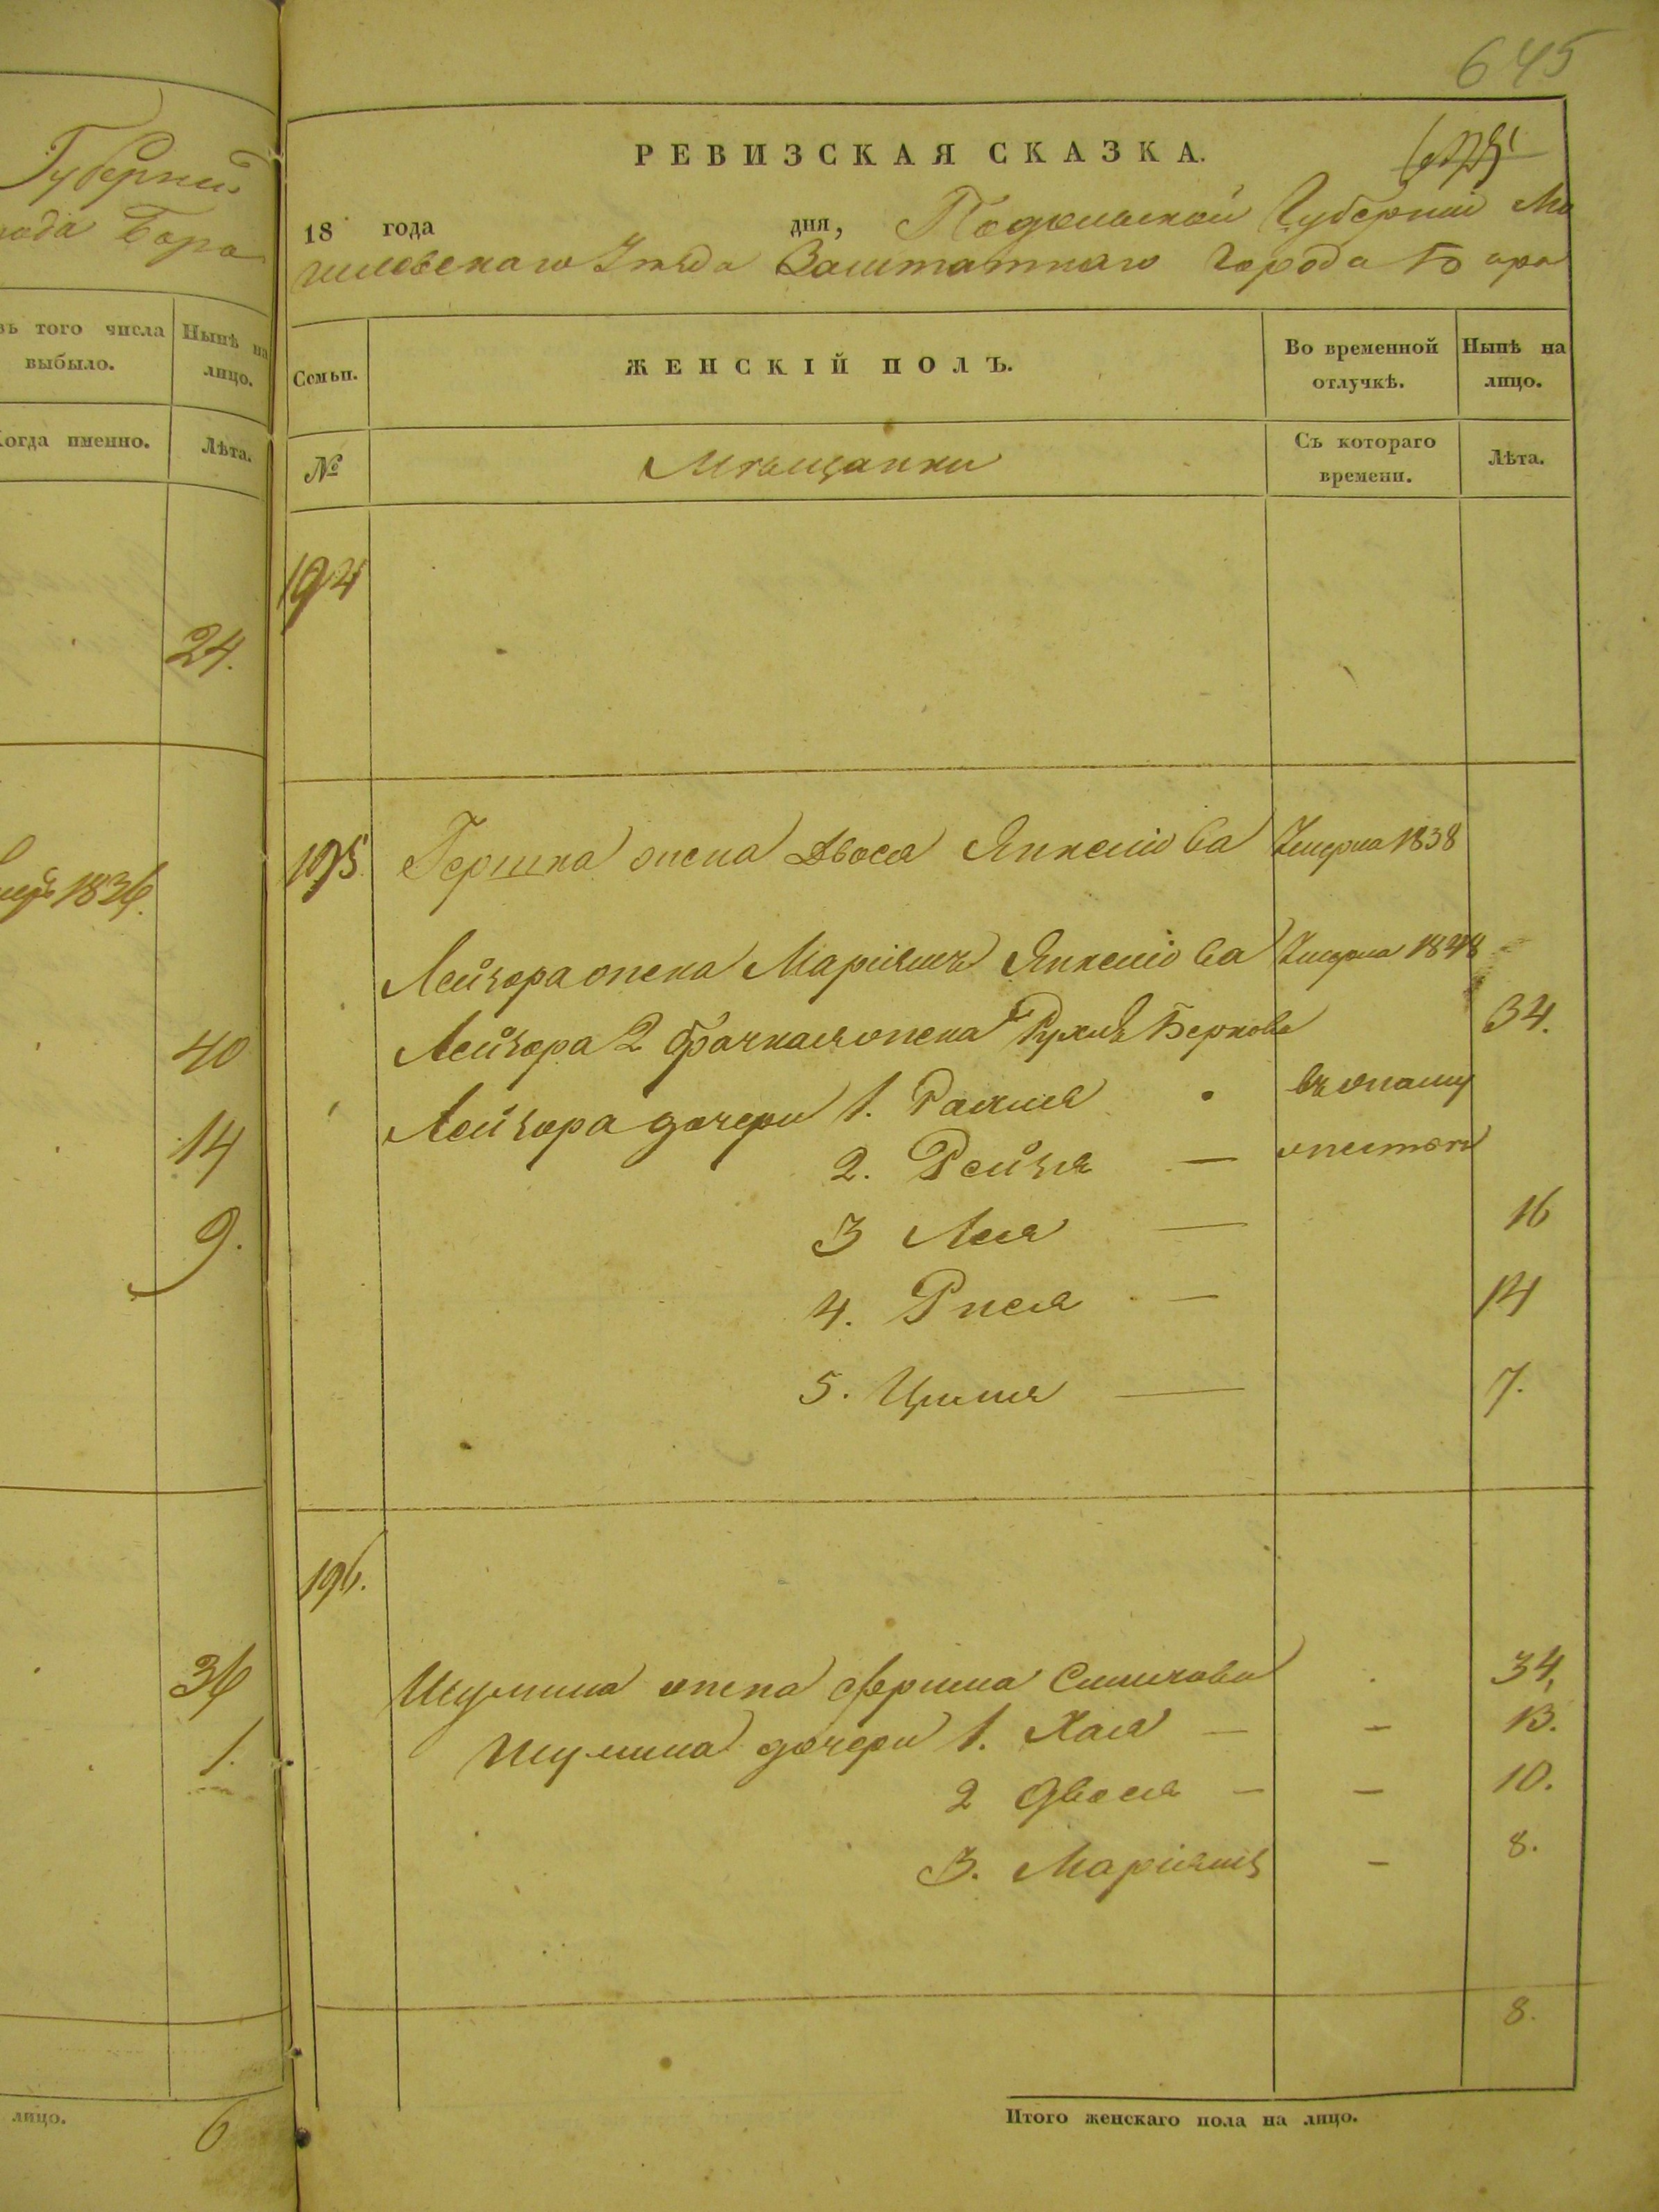 Губерніи
рода Бара
въ того числа
выбыло.
Нынѣ на
лицо.
Когда именно.
Лѣта.
24.
1836.
40
14
9.
36
1.
лицо.
6
645
РЕВИЗСКАЯ СКАЗКА.
18 года дня, Подольской Губерніи Мо
гилевскаго Уѣзда Заштатнаго Города Бара
Семьи.
ЖЕНСКІЙ ПОЛЪ.
Во временной
отлучкѣ.
Нынѣ на
лицо.
№
Мѣщанки
Съ котораго
времени.
Лѣта.
194
195 Гершка жена Двося Янкеліова Умерла 1838
Лейзора жена Маріямъ Янкеліова Умерла 1848
Лейзора 2 брачная жена Рухль Беркова 34.
Лейзора дочери 1. Рахля въ заму
2. Рейзя жестве
3 Лея 16
4. Рися 14
5. Ципя 7.
196.
Шулима жена Фрима 34,
Шулима дочери 1. Хая — — 13.
2 Двося — — 10.
3. Маріямъ — 8.
8.
Итого женскаго пола на лицо.